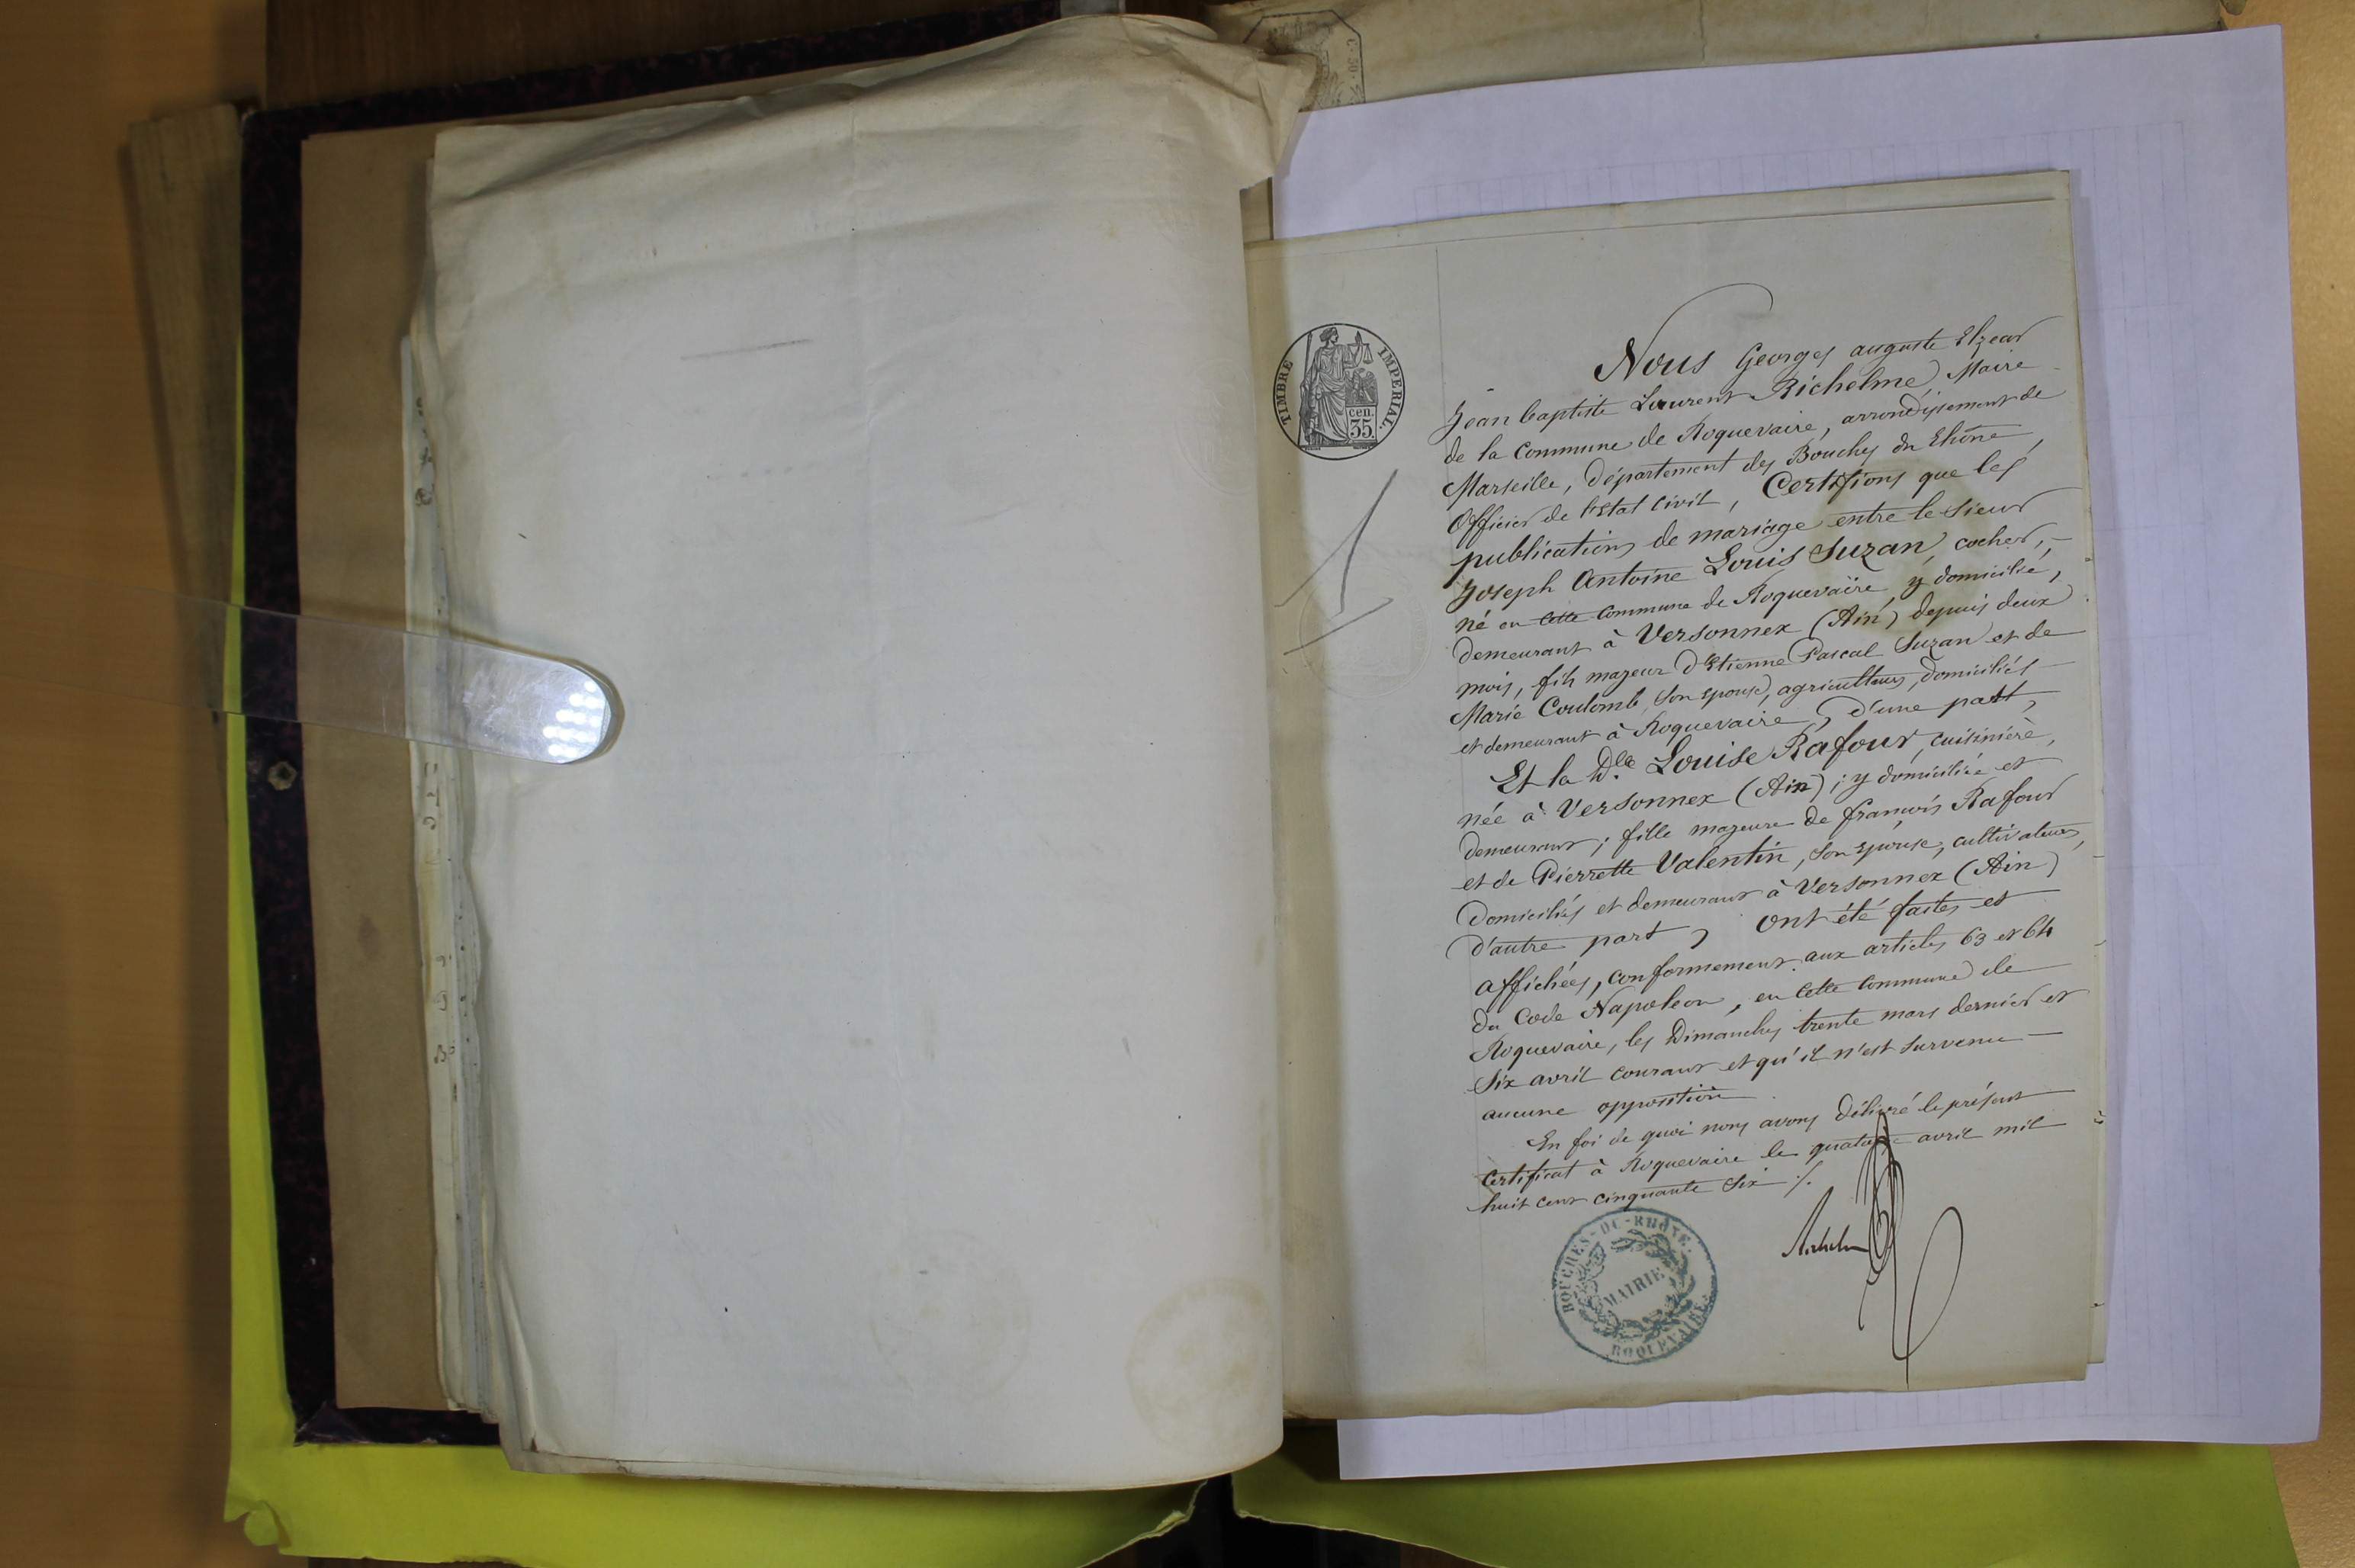 TIMBRE IMPERIAL.
cen.
35.
1
Nous Georges auguste Elzear
Jean baptiste Laurent Richelme, Maire
de la Commune de Roquevaire, arrondissement de
Marseille, département des Bouches du Rhône,
Officier de l'Etat Civil, Certifions que les
publications de mariage entre le Sieur
Joseph Antoine Louis Suzan, cocher,
né en cette Commune de Roquevaire, y domicilié,
demeurant à Versonnex (Ain) depuis deux
mois, fils majeur d'Etienne Pascal Suzan et de
Marie Coulomb, son épouse, agriculteurs, domiciliés
et demeurant à Roquevaire, d'une part,
Et la Dlle Louise Rafour, cuisinière,
née à Versonnex (Ain); y domiciliée et
demeurant; fille majeure de françois Rafour
et de Pierrette Valentin, son épouse, cultivateurs,
domiciliés et demeurant à Versonnex (Ain)
d'autre part, ont été faites et
affichées, conformement aux articles 63 et 64
du Code Napoleon, en cette Commune de
Roquevaire, les Dimanches trente mars dernier et
six avril courant et qu'il n'est survenu
aucune opposition.
En foi de quoi nous avons délivré le présent
Certificat à Roquevaire le quatorze avril mil
huit cent cinquante six ./.
Richelme
BOUCHES-DU-RHÔNE.
MAIRIE
ROQUEVAIRE